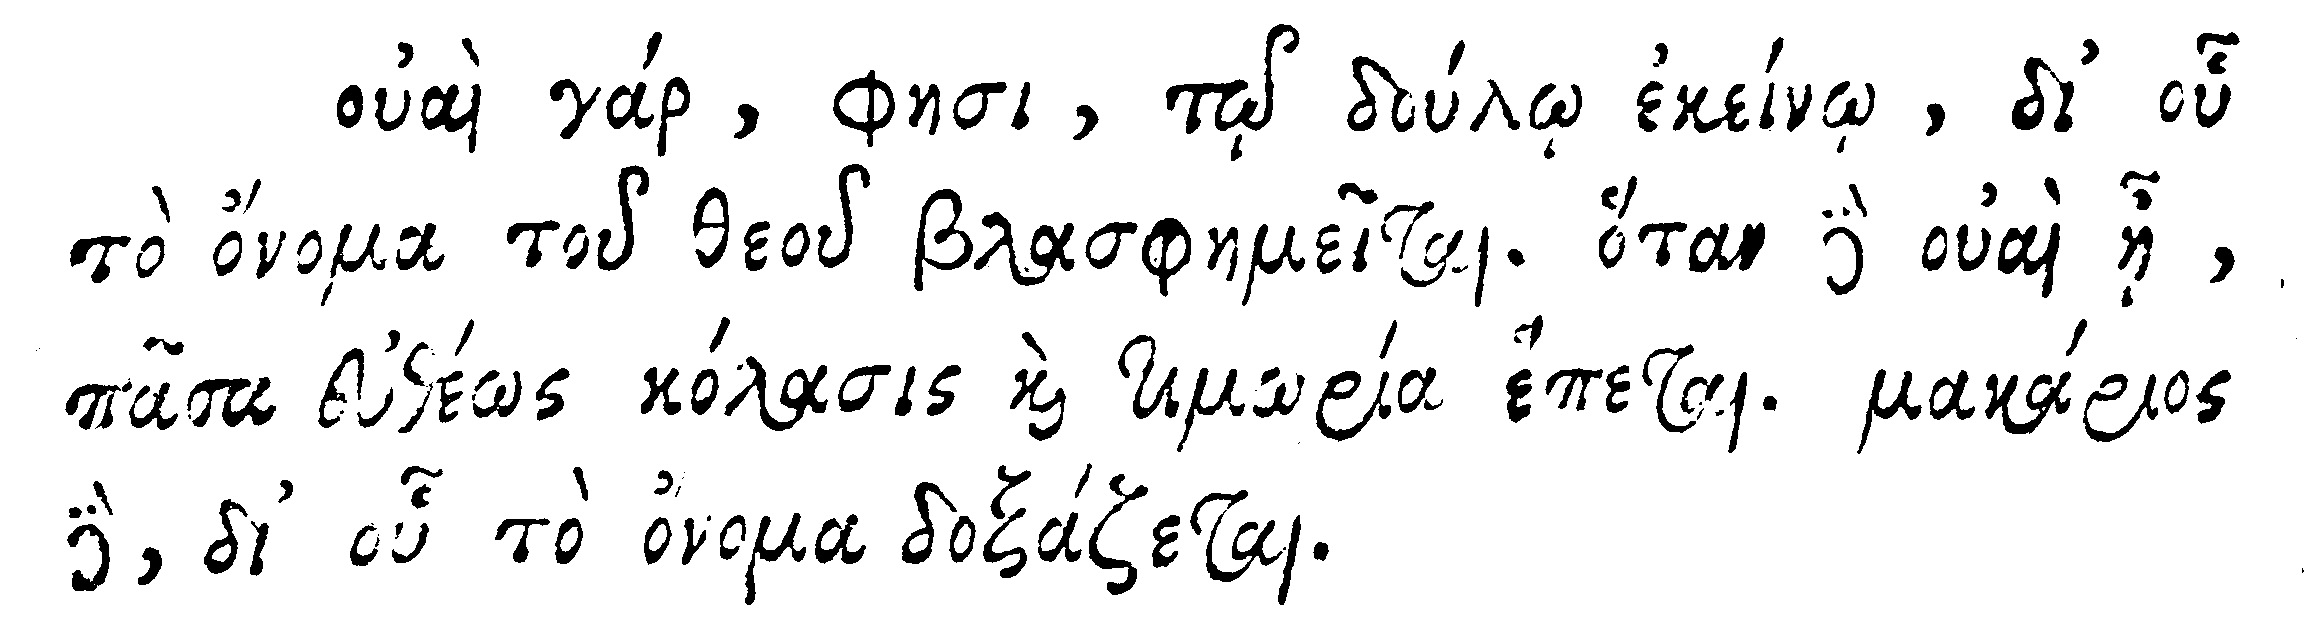 οὐαὶ γάρ, φησι, τῷ δούλῳ ἐκείνῳ, δι’ οὗ
τὸ ὄνομα τοῦ θεοῦ βλασφημεῖται. ὅταν δὲ οὐαὶ ᾖ,
πᾶσα εὐθέως κόλασις καὶ τιμωρία ἕπεται. μακάριος
δὲ, δι’ οὗ τὸ ὄνομα δοξάζεται.